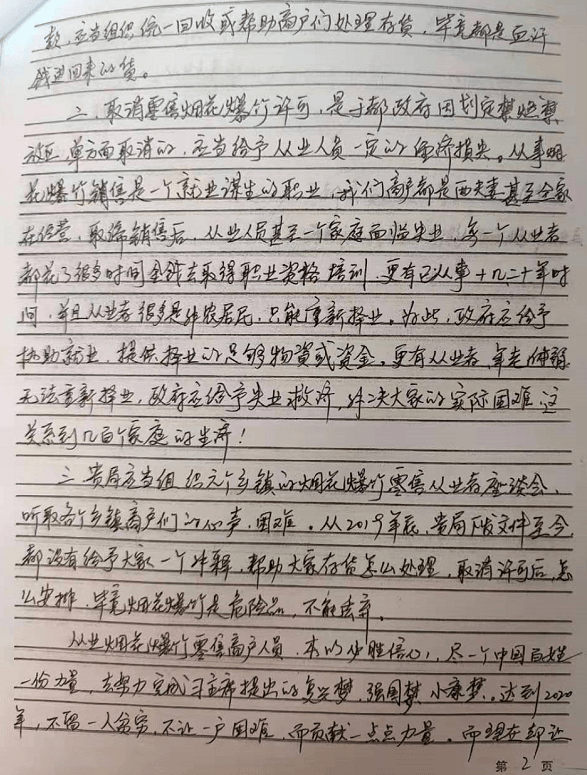 款，应当组织统一回收或帮助商户们处理存货，毕竟都是血汗
钱进回来的货。
二、取消零售烟花爆竹许可，是于都政府因划定禁炮禁
放区，单方面取消的，应当给予从业人员一定的经济损失。从事烟
花爆竹销售是一个就业谋生的职业，我们商户都是两夫妻甚至全家
在经营，取缔销售后，从业人员甚至一个家庭面临失业，每一个从业者
都花了很多时间金钱去取得职业资格培训，更有已从事十几二十年时
间，并且从业者很多是非农居民，只能重新择业。为此，政府应给予
协助就业，提供择业的足够物资或资金。更有从业者，年老体弱
无法重新择业，政府应给予失业救济，解决大家的实际困难，这
关系到几百个家庭的生济！
三、贵局应当组织几个乡镇的烟花爆竹零售从业者座谈会，
听取各个乡镇商户们的心声、困难。从2019年底，贵局下发文件至今，
都没有给予大家一个解释，帮助大家存货怎么处理，取消许可后，怎
么安排，毕竟烟花爆竹是危险品，不能丢弃。
从业烟花爆竹零售商户人员，本以必胜信心，尽一个中国百姓
一份力量，去努力完成习主席提出的复兴梦，强国梦，小康梦，达到2020
年，不留一人贫穷，不让一户困难，而贡献一点点力量。而现在却让
第 2 页